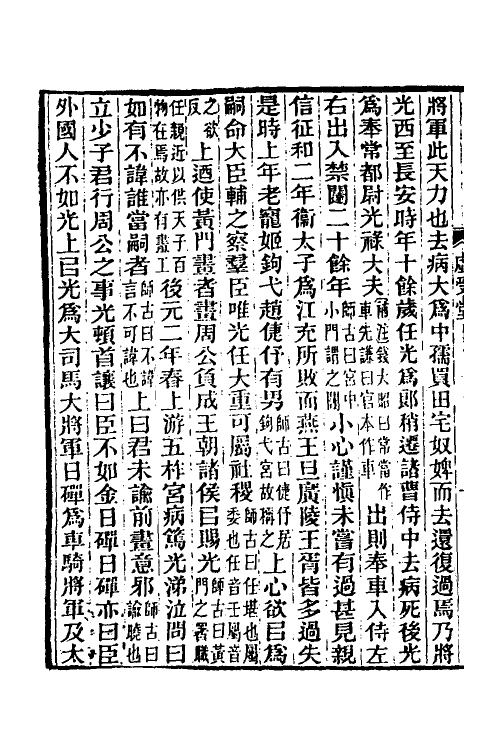 將軍此天力也去病大爲中孺買田宅奴婢而去還復過焉乃將
光西至長安時年十餘歲任光爲郎稍遷諸曹侍中去病死後光
爲奉常都尉光祿大夫補注錢大昭曰常當作車先謙曰官本作車出則奉車入侍左
右出入禁闥二十餘年師古曰宮中小門謂之闥小心謹愼未嘗有過甚見親
信征和二年衞太子爲江充所敗而燕王旦廣陵王胥皆多過失
是時上年老寵姬鉤弋趙倢伃有男師古曰倢伃居鉤弋宮故稱之上心欲㠯爲
嗣命大臣輔之察羣臣唯光任大重可屬社稷師古曰任堪也屬委也任音壬屬音
之欲反上迺使黃門畫者畫周公負成王朝諸侯㠯賜光師古曰黃門之署職
任親近以供天子百物在焉故亦有畫工後元二年春上游五柞宮病篤光涕泣問曰
如有不諱誰當嗣者師古曰不諱言不可諱也上曰君未諭前畫意邪師古曰諭曉也
立少子君行周公之事光頓首讓曰臣不如金日磾日磾亦曰臣
外國人不如光上㠯光爲大司馬大將軍日磾爲車騎將軍及太